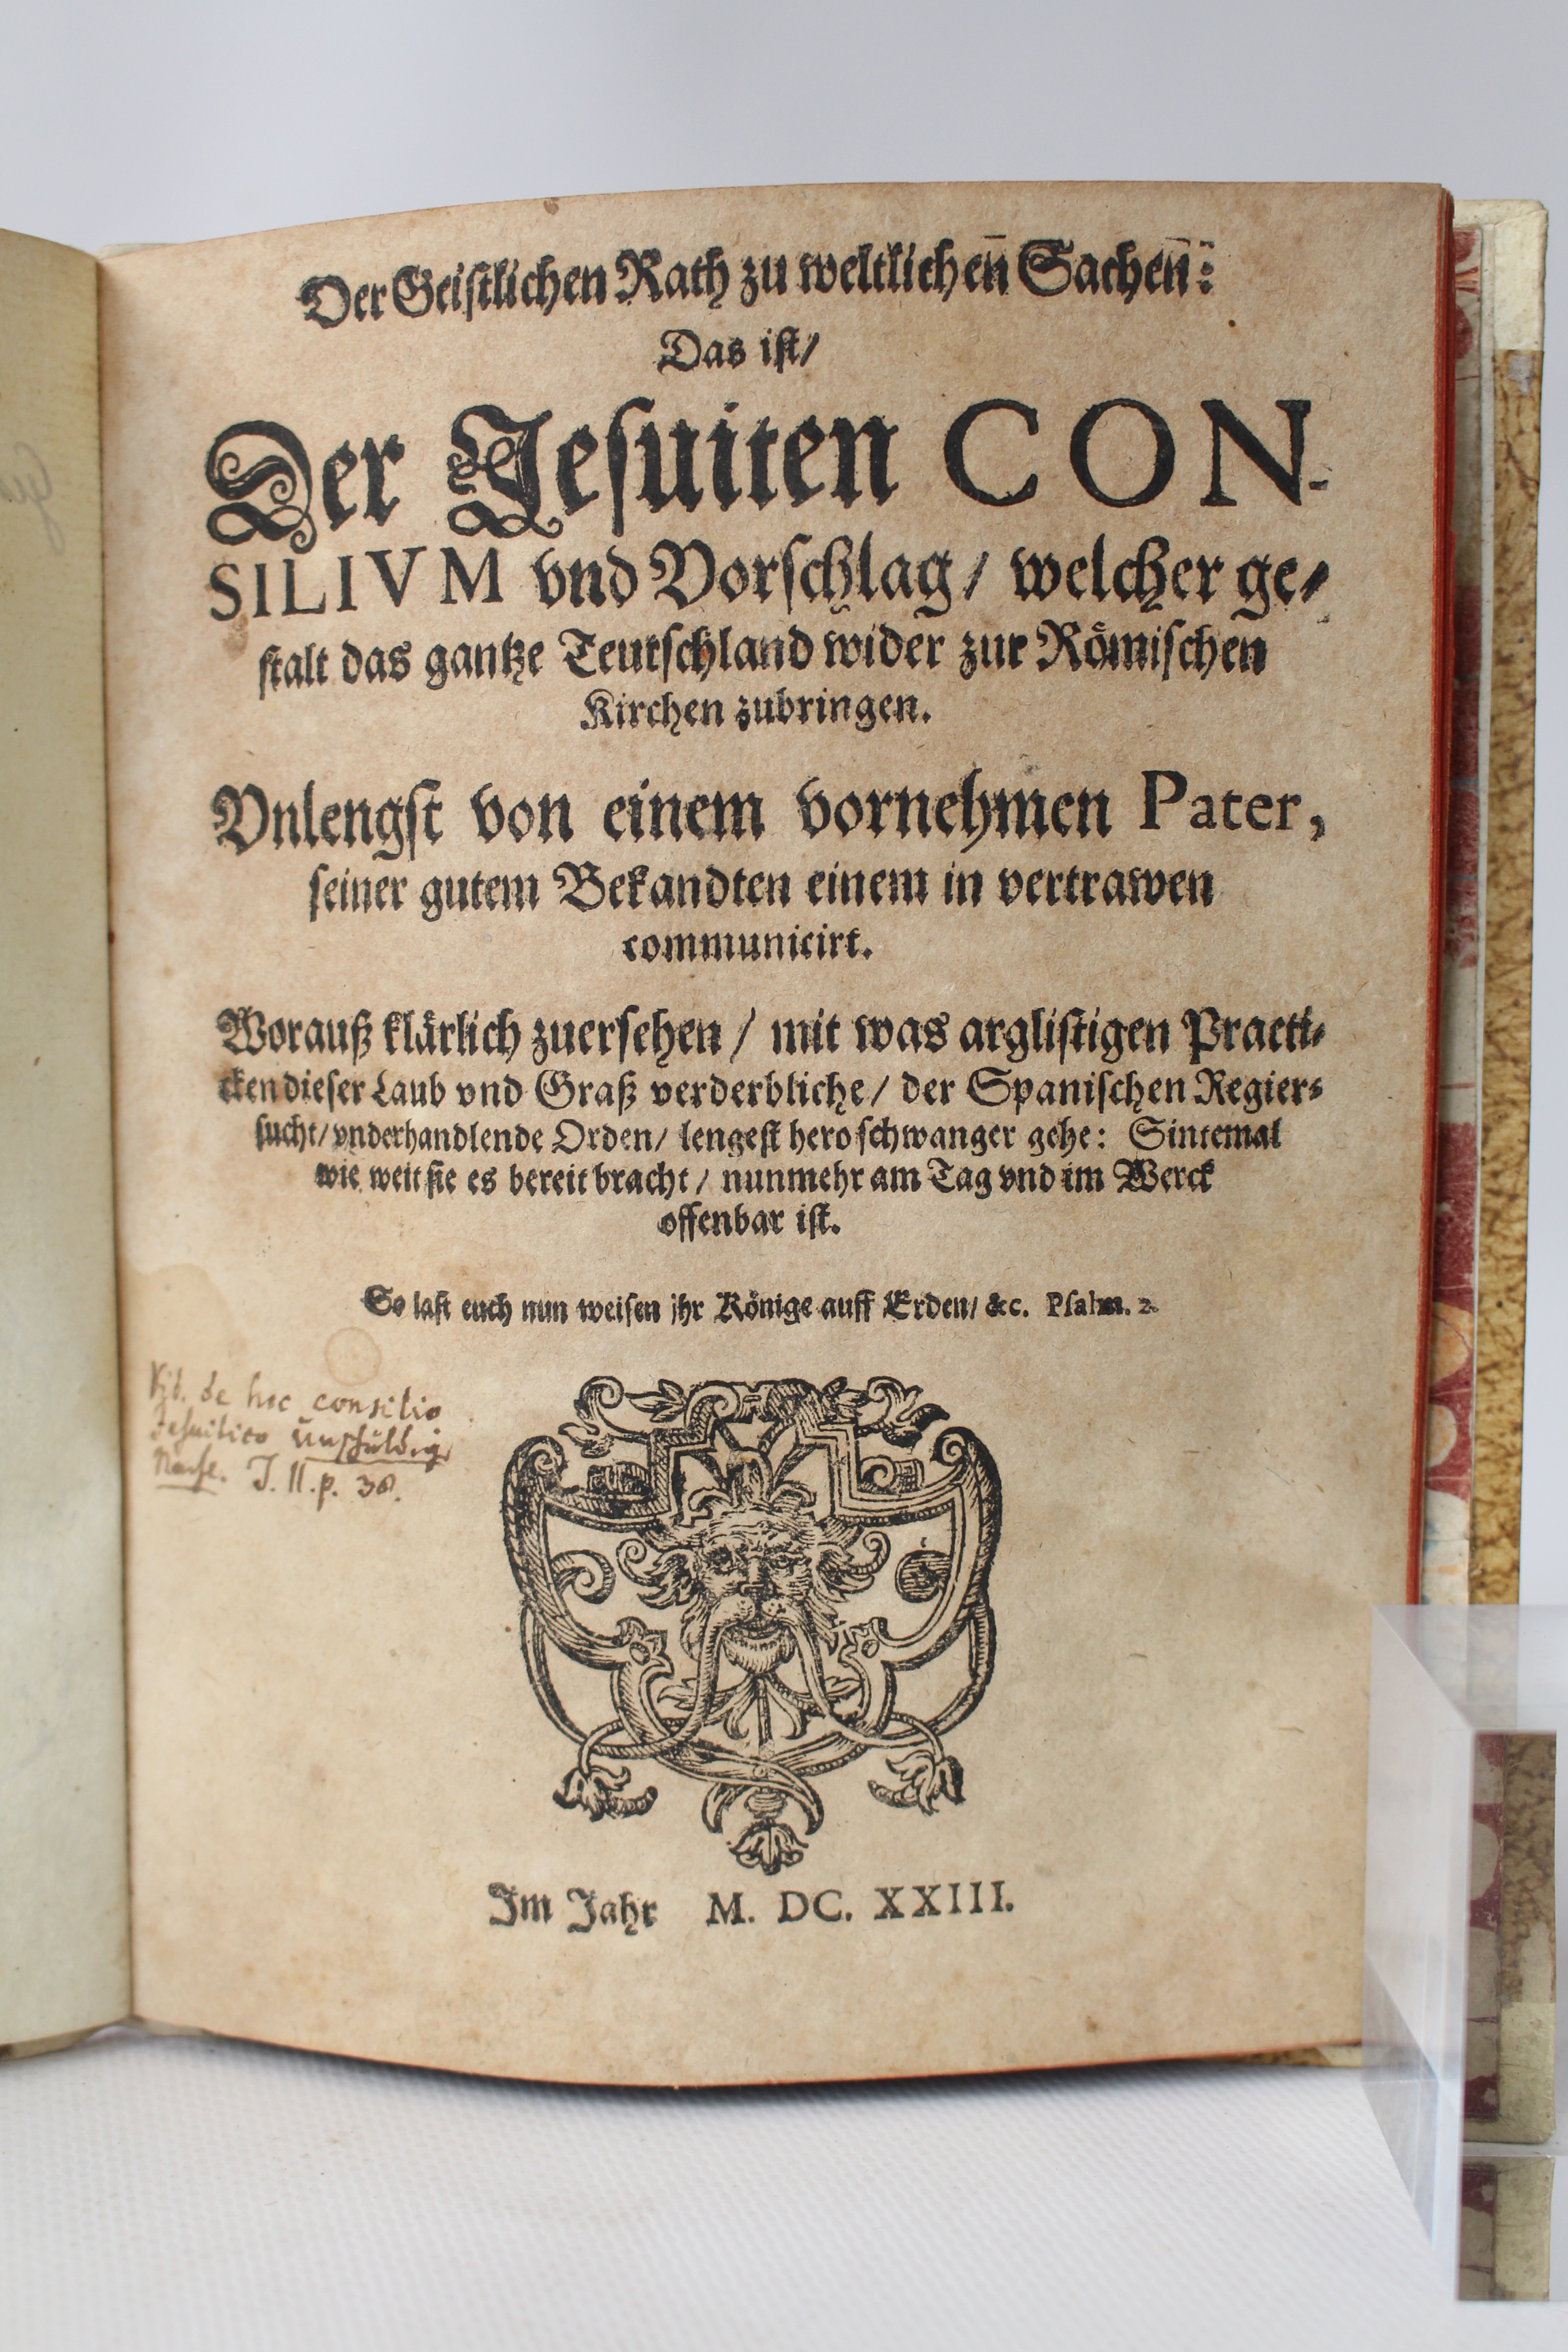 Der Geistlichen Rath zu weltlichen̄ Sachen̄:
Das ist/
Der Jesuiten CON-
SILIVM vnd Vorschlag/ welcher ge-
stalt das gantze Teutschland wider zur Römischen
Kirchen zubringen.
Vnlengst von einem vornehmen Pater,
seiner gutem Bekandten einem in vertrawen
communicirt.
Worauß klärlich zuersehen/ mit was arglistigen Practi-
cken dieser Laub vnd Graß verderbliche/ der Spanischen Regier-
sucht/ vnderhandlende Orden/ lengest hero schwanger gehe: Sintemal
wie weit sie es bereit bracht/ nunmehr am Tag vnd im Werck
offenbar ist.
So last euch nun weisen jhr Könige auff Erden/ &c. Psalm. 2.
Vid. de hoc consilio
Jesuitico Unschuldig
Nachr. T. II. p. 38.
Im Jahr M. DC. XXIII.